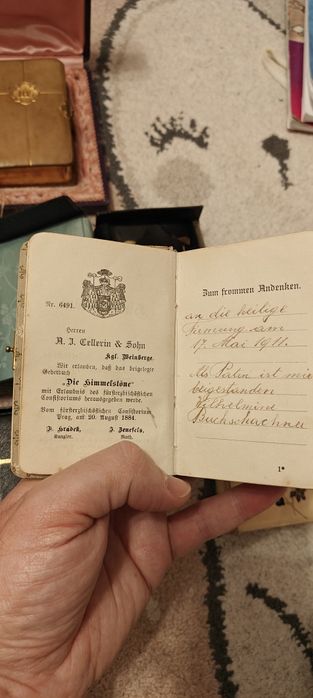 Nr. 6491.
Herren
A. J. Cellerin & Sohn
Kgl. Weinberge.
Wir erlauben, daß das beigelegte
Gebetbuch
„Die Himmelstöne“
mit Erlaubnis des fürsterzbischöflichen
Consistoriums herausgegeben werde.
Vom fürsterzbischöflichen Consistorium
Prag, am 20. August 1884.
P. Hradek, J. Zenefels,
Kanzler. Rath.
Zum frommen Andenken.
an die heilige
Firmung am
17. Mai 1911.
Als Patin ist mir
beigestanden
Wilhelmine
Buchschachner
1*